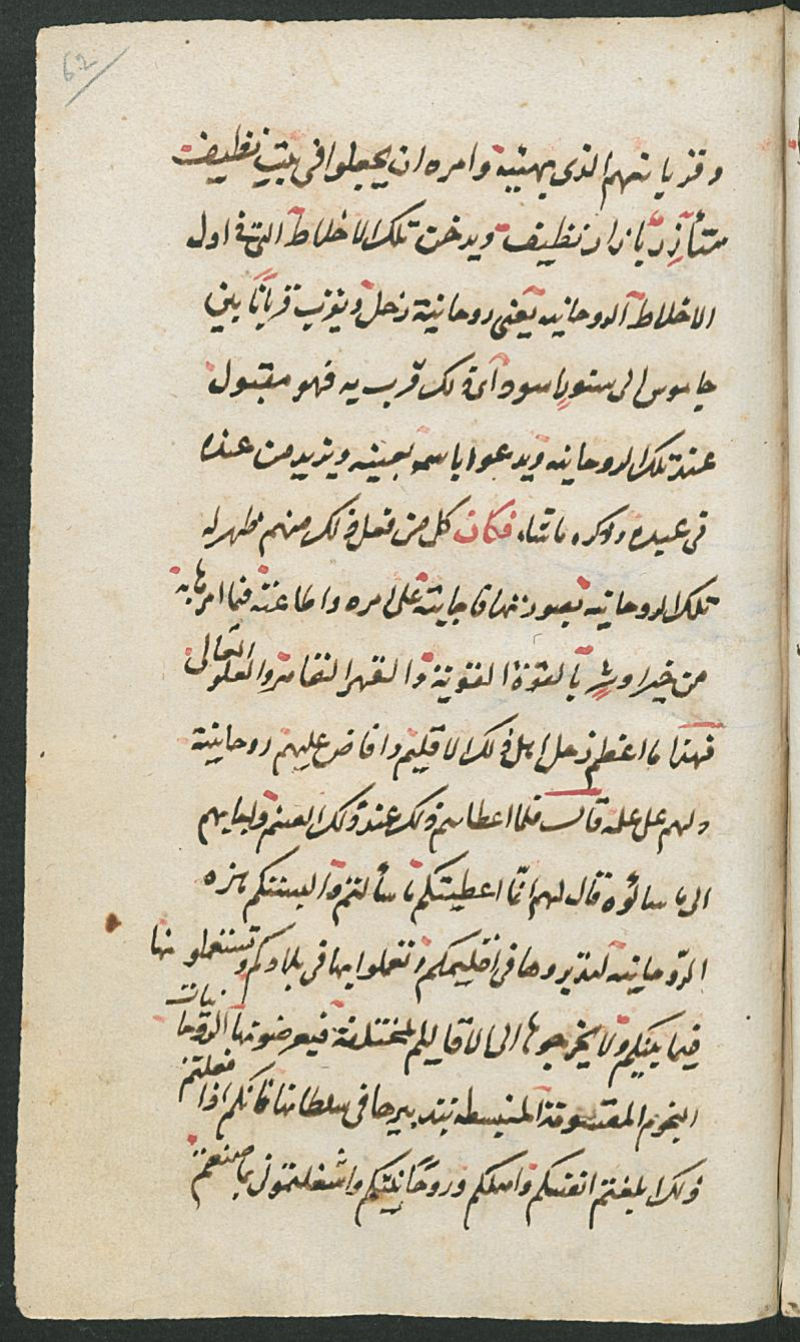 62
وقد يا نعهم الذى يهنيه وامره ان يجعلوا فى بيت نظيف
متأزر بازار نظيف ويدخن تلك الاخلاط التى فى اول
الاخلاط الروحانيه يعنى روحانية زحل ويقرب قربانا بلى
جاموس الى سنور اسود اى ذلك قرب به فهو مقبول
عند تلك الروحانيه ويدعوا باسمه بعينه ويزيد من عنده
فى عيده وذكره ما شاء فكان كل من فعل ذلك منهم ظهر له
تلك الروحانيه بصورتها فاجابته على امره واطاعته فيما امرها به
من خير او شر بالقوة القوية والقهر القاهر والعلو العالى
فهذا ما اعظم زحل اهل ذلك الاقليم وافاض عليهم روحانيته
ولهم على علمه قال فلما اعطاهم ذلك عند ذلك الصنم واجابهم
الى ما سالوه قال لهم انّما اعطيتكم ما سألتم والبستكم هذه
الروحانيه لتدبروها فى اقليمكم وتعملوا بها فى بلادكم وتستعملونها
فيما بينكم ولا يخرجوها الى الاقاليم المختلفة فيعرضونها الروحانيات
النجوم المقسومة المنبسطه بتدبيرها فى سلطانها فانكم اذا فعلتم
ذلك ابلغتم انفسكم واهلكم وروحانيتكم واشغلتمونى بما صنعتم